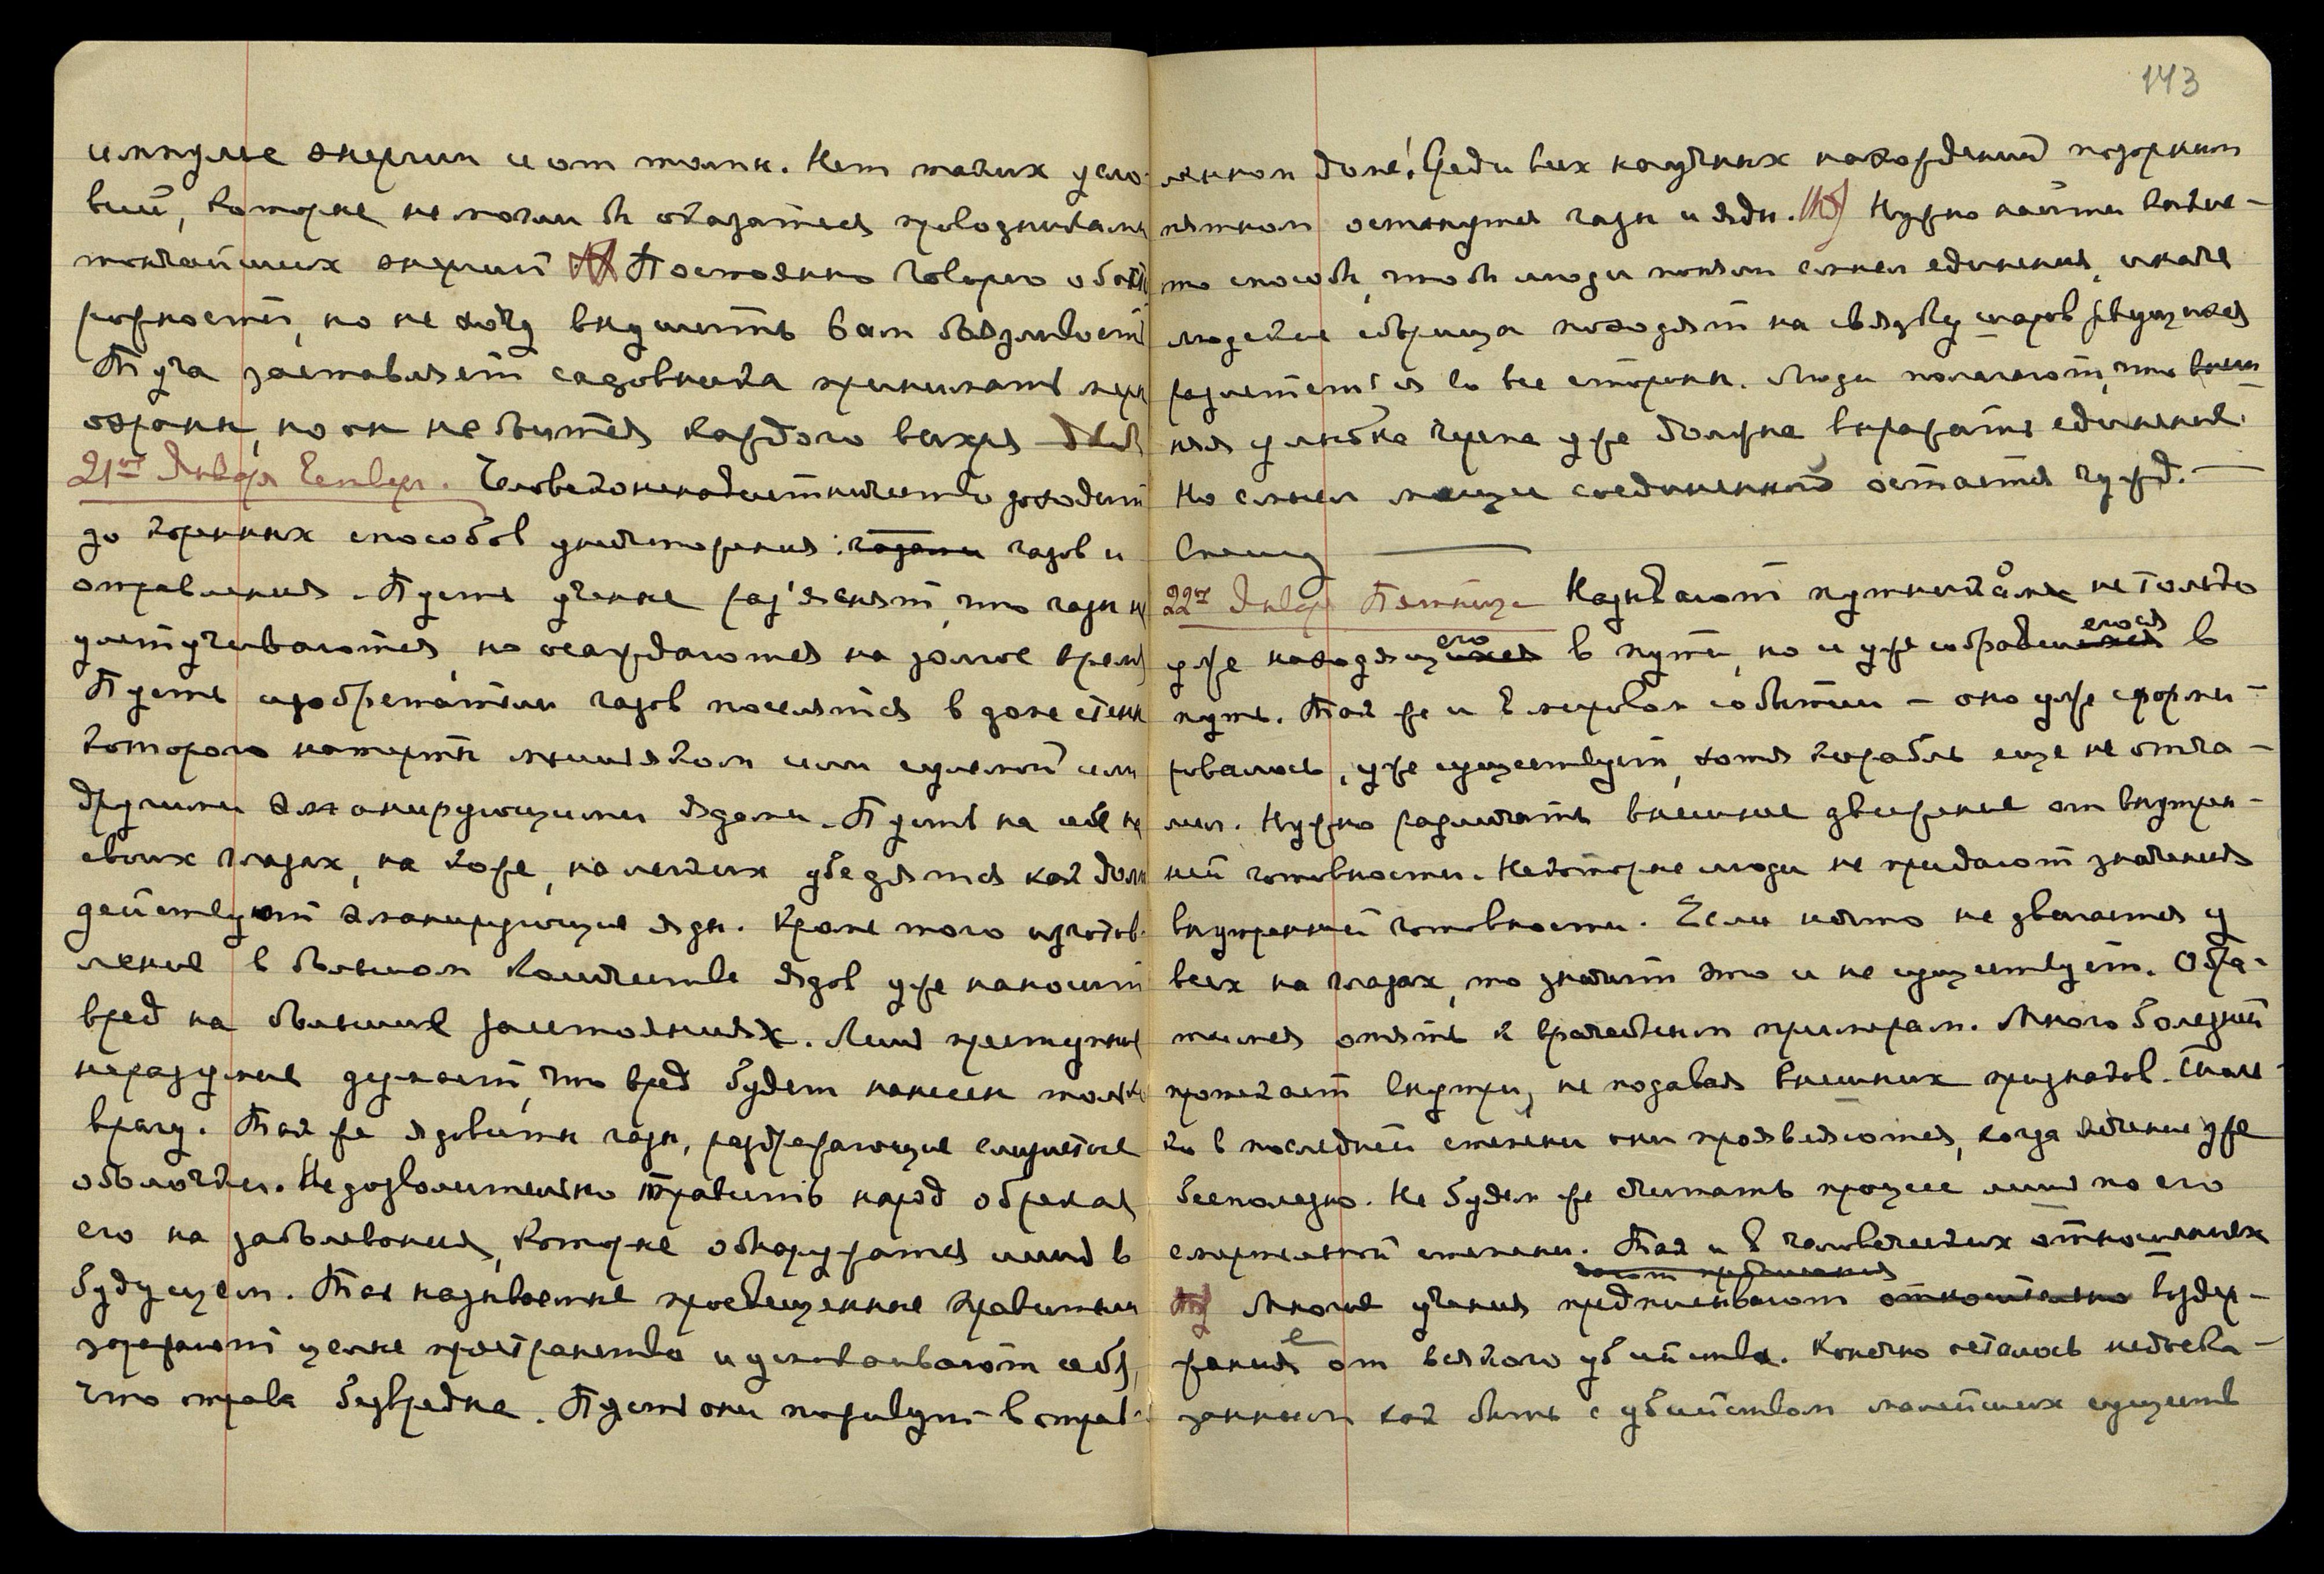 импульс энергии и от толпы. Нет таких усло-
вий, которые не могли бы оказаться проводниками
тончайших энергий. Постоянно говорю об осто
рожности, но не хочу внушить вам боязливость
Туча заставляет садовника принимать меры
охраны, но он не боится каждого вихря
21ое Январ Четверг. Человеконенавистничество доходит
до коренных способов уничтожения: газами газов и
отравления. Пусть ученые раз'яснят, что газы не
улетучиваются, но осаждаются на долгое время
Пусть изобретатели газов поселятся в доме стены
которого натерты мышьяком или сулемой или
другими эманирующими ядами. Пусть на себе на
своих глазах, на коже, на легких убедятся как долго
действуют эманирующие яды. Кроме того изготов-
ление в большом количестве ядов уже наносит
вред на больших расстояниях. Лишь преступные
неразумие думает, что вред будет нанесен только
врагу. Так же ядовиты газы, раздражающие слизистые
оболочки. Недозволительно травить народ обрекая
его на заболевания, которые обнаружатся лишь в
будущем. Так называемые просвещенные правители
заражают целые пространства и успокаивают себя,
что отрава безвредна. Пусть они поживут в отрав-
143
ленном доме! Среди всех научных нахождений позорным
пятном останутся газы и яды. Нужно найти какие-
то способы, чтобы люди поняли смысл единения, иначе
людские сборища походят на связку шаров рвущихся
разлететься во все стороны. Люди полагают, что внеш-
няя улыбка черепа уже должна выражать единение.
Но смысл мощи соединенной остается чужд. —
Спешу
22ое Январ Пятница Называют путником не только
уже находящихся его в пути, но и уже собравшихся егося в
путь. Так же и в мировом событии - оно уже сформи-
ровалось, уже существует, хотя корабль еще не отча-
лил. Нужно различать внешнее движение от внутрен-
ней готовности. Некоторые люди не придают значения
внутренней готовности. Если нечто не двигается у
всех на глазах, то значит это и не существует. Обра-
тимся опять к врачебным примерам. Много болезней
протекает внутри, не подавая внешних признаков. Толь-
ко в последней степени они проявляются, когда лечение уже
бесполезно. Не будем же считать процесс лишь по его
смертельной степени. Так и в человеческих отношениях
Многие учения предписывают относительно воздер-
жание от всякого убийства. Конечно осталось недоска-
занным как быть с убийством малейших существ